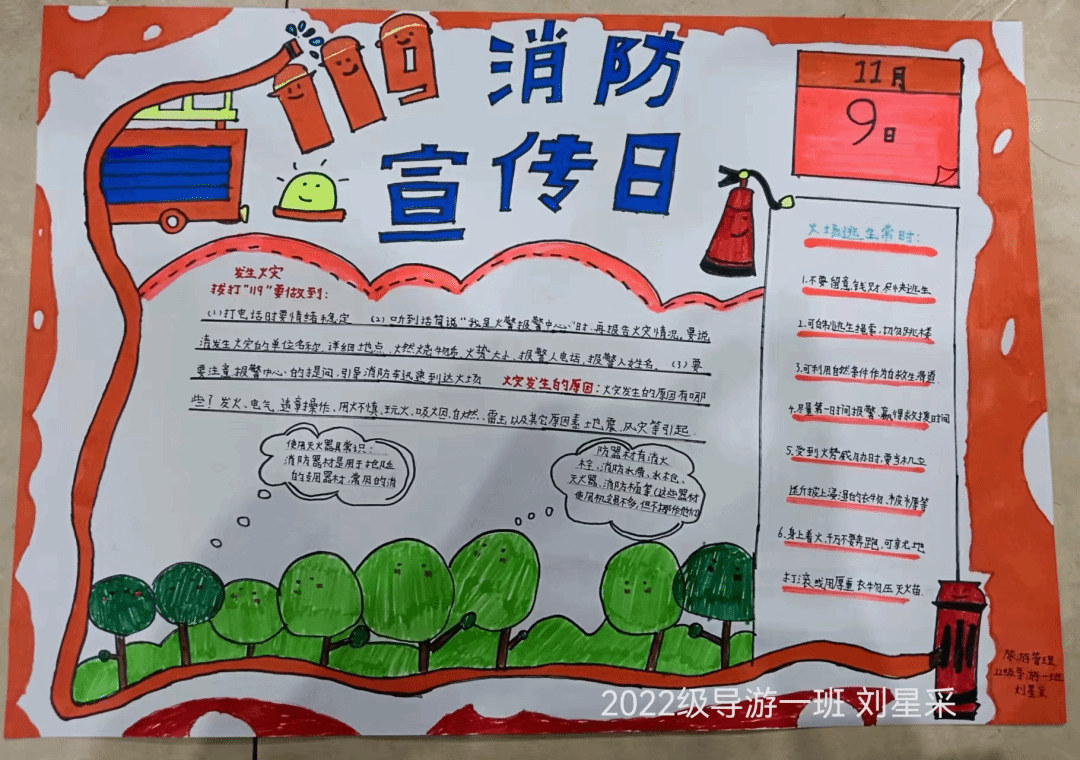 119 消防
宣传日
11月
9日
发生火灾
拔打"119"要做到:
(1)打电话时要情绪稳定 (2)听到话筒说"我是火警报警中心"时,再报告火灾情况。要说
清发生火灾的单位名称、详细地点、火燃烧物质、火势大小、报警人电话,报警人姓名。(3)要
要注意报警中心的提问,引导消防车迅速到达火场 火灾发生的原因:火灾发生的原因有哪
些?发火、电气、违章操作、用火不慎、玩火、吸烟、自然、雷击以及其它原因素地震、风灾等引起.
使用灭火器具常识:
消防器材是用于抢险
的专用器材.常用的消
防器材有消火
栓、消防水带、水木包、
灭火器、消防桶等(这些器材
使用机会虽不多,但不挪作他们
火场逃生常时:
1.不要留意钱财尽快逃生
2.可的逃生绳索,切勿跳楼
3.可利用自然条件作为自救生滑道
4.尽量第一时间报警,赢得救援时间
5.受到火势威胁时,要当机立
披上浸湿的衣物、被褥等
6.身上着火,千万不要奔跑,可京尤地
打滚或用厚重衣物压灭火苗.
旅游管理
22级导游一班
刘星采
2022级导游一班 刘星采